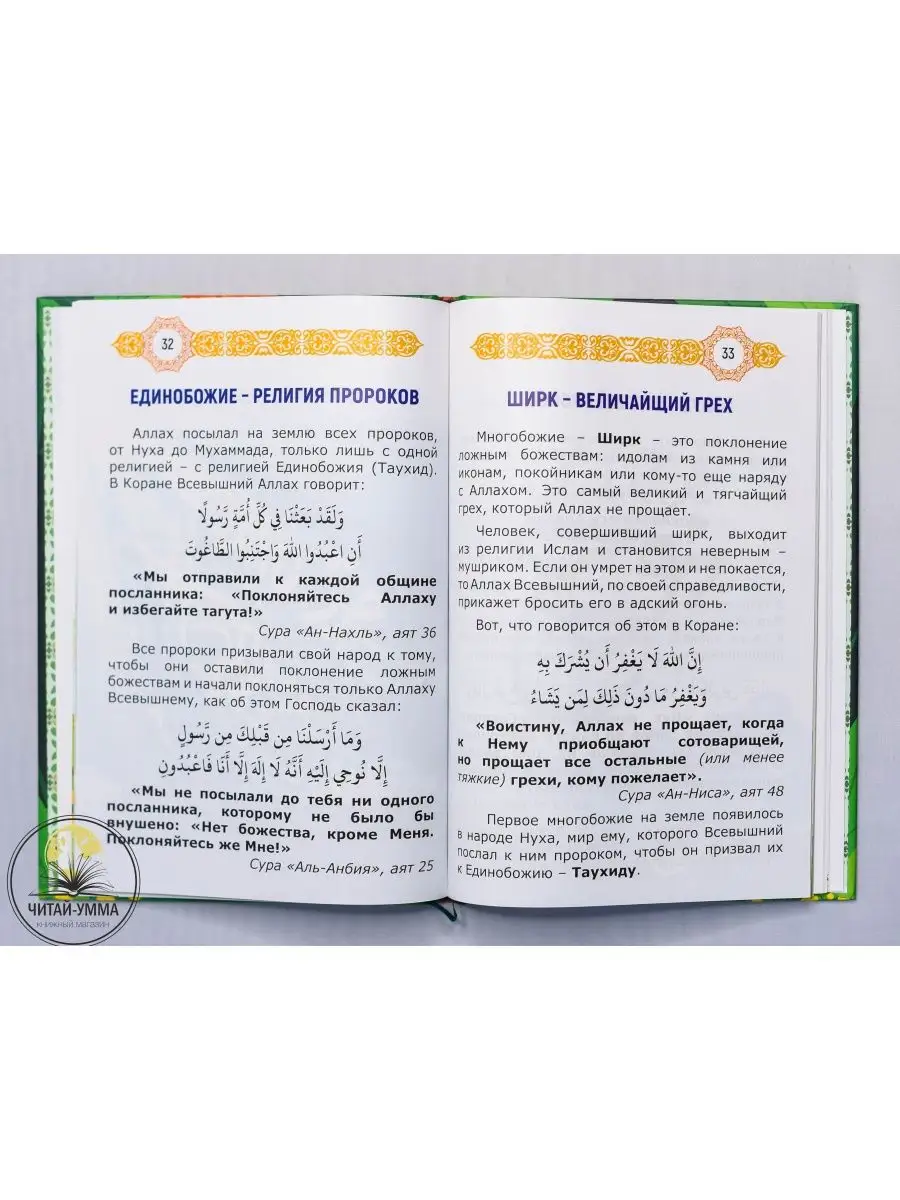 32
ЕДИНОБОЖИЕ – РЕЛИГИЯ ПРОРОКОВ
Аллах посылал на землю всех пророков,
от Нуха до Мухаммада, только лишь с одной
религией – с религией Единобожия (Таухид).
В Коране Всевышний Аллах говорит:
وَلَقَدْ بَعَثْنَا فِي كُلِّ أُمَّةٍ رَّسُولًا
أَنِ اعْبُدُوا اللَّهَ وَاجْتَنِبُوا الطَّاغُوتَ
«Мы отправили к каждой общине
посланника: «Поклоняйтесь Аллаху
и избегайте тагута!»
Сура «Ан-Нахль», аят 36
Все пророки призывали свой народ к тому,
чтобы они оставили поклонение ложным
божествам и начали поклоняться только Аллаху
Всевышнему, как об этом Господь сказал:
وَمَا أَرْسَلْنَا مِن قَبْلِكَ مِن رَّسُولٍ
إِلَّا نُوحِي إِلَيْهِ أَنَّهُ لَا إِلَهَ إِلَّا أَنَا فَاعْبُدُونِ
«Мы не посылали до тебя ни одного
посланника, которому не было бы
внушено: «Нет божества, кроме Меня.
Поклоняйтесь же Мне!»
Сура «Аль-Анбия», аят 25
33
ШИРК – ВЕЛИЧАЙЩИЙ ГРЕХ
Многобожие – Ширк – это поклонение
ложным божествам: идолам из камня или
иконам, покойникам или кому-то еще наряду
с Аллахом. Это самый великий и тягчайший
грех, который Аллах не прощает.
Человек, совершивший ширк, выходит
из религии Ислам и становится неверным –
мушриком. Если он умрет на этом и не покается,
то Аллах Всевышний, по своей справедливости,
прикажет бросить его в адский огонь.
Вот, что говорится об этом в Коране:
إِنَّ اللَّهَ لَا يَغْفِرُ أَن يُشْرَكَ بِهِ
وَيَغْفِرُ مَا دُونَ ذَلِكَ لِمَن يَشَاءُ
«Воистину, Аллах не прощает, когда
к Нему приобщают сотоварищей,
но прощает все остальные (или менее
тяжкие) грехи, кому пожелает».
Сура «Ан-Ниса», аят 48
Первое многобожие на земле появилось
в народе Нуха, мир ему, которого Всевышний
послал к ним пророком, чтобы он призвал их
к Единобожию – Таухиду.
ЧИТАЙ-УММА
КНИЖНЫЙ МАГАЗИН